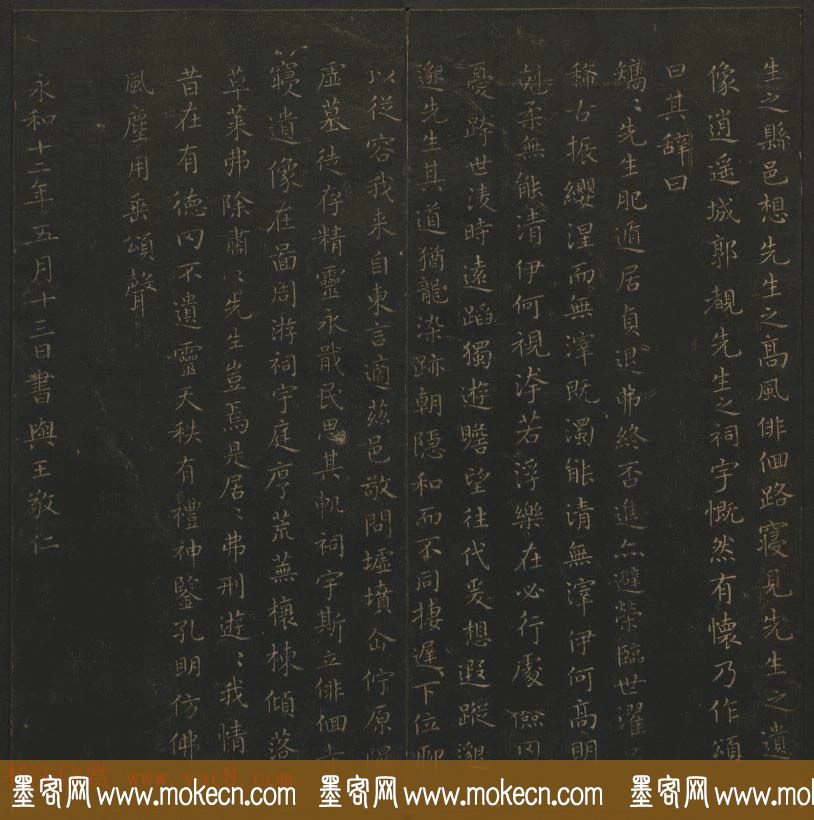 生之縣邑想先生之高風俳佪路寢見先生之遺
像逍遥城郭覩先生之祠宇慨然有懷乃作頌
曰其辭曰
矯〻先生肥遁居貞退弗終否進亦避榮臨世濯
稀古振纓涅而無滓既濁能清無滓伊何高明
剋柔無能清伊何視洿若浮樂在必行處儉罔
憂跨世淩時遠蹈獨遊瞻望往代爰想遐蹤邈
邈先生其道猶龍染跡朝隱和而不同棲遲下位聊
以從容我来自東言適兹邑敬問墟墳企佇原隰
虚墓徒存精靈永戢民思其軌祠宇斯立俳佪寺
寢遺像在啚周游祠宇庭序荒蕪榱棟傾落
草莱弗除肅〻先生豈焉是居〻弗刑遊〻我情
昔在有德罔不遺靈天秩有禮神鑒孔明仿佛
風塵用垂頌聲
永和十二年五月十三日書與王敬仁
www.yac8.com
墨客网 www.mokecn.com 墨客网 www.mokecn.com 墨客网 www.mokecn.com